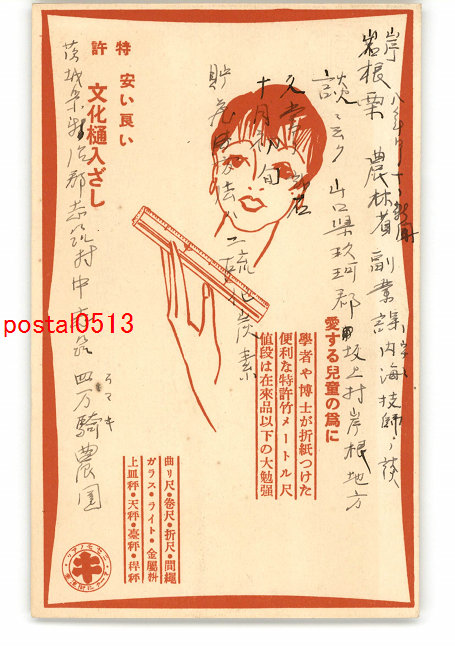 特許
安い良い
文化樋入ざし
愛する兒童の爲に
學者や博士が折紙つけた
便利な特許竹メートル尺
値段は在來品以下の大勉强
曲り尺・卷尺・折尺・間繩
ガラス・ライト・金屬枡
上皿秤・天秤・臺秤・桿秤
岸根栗 農林省副業課内海技師ノ談
談ニヨク 山口県玖珂郡坂上村岸根地方
十月初旬
貯蔵方法ハ二硫化炭素
茨城県新治郡志筑村中志筑 四万騎農園
シマキ
postal0513